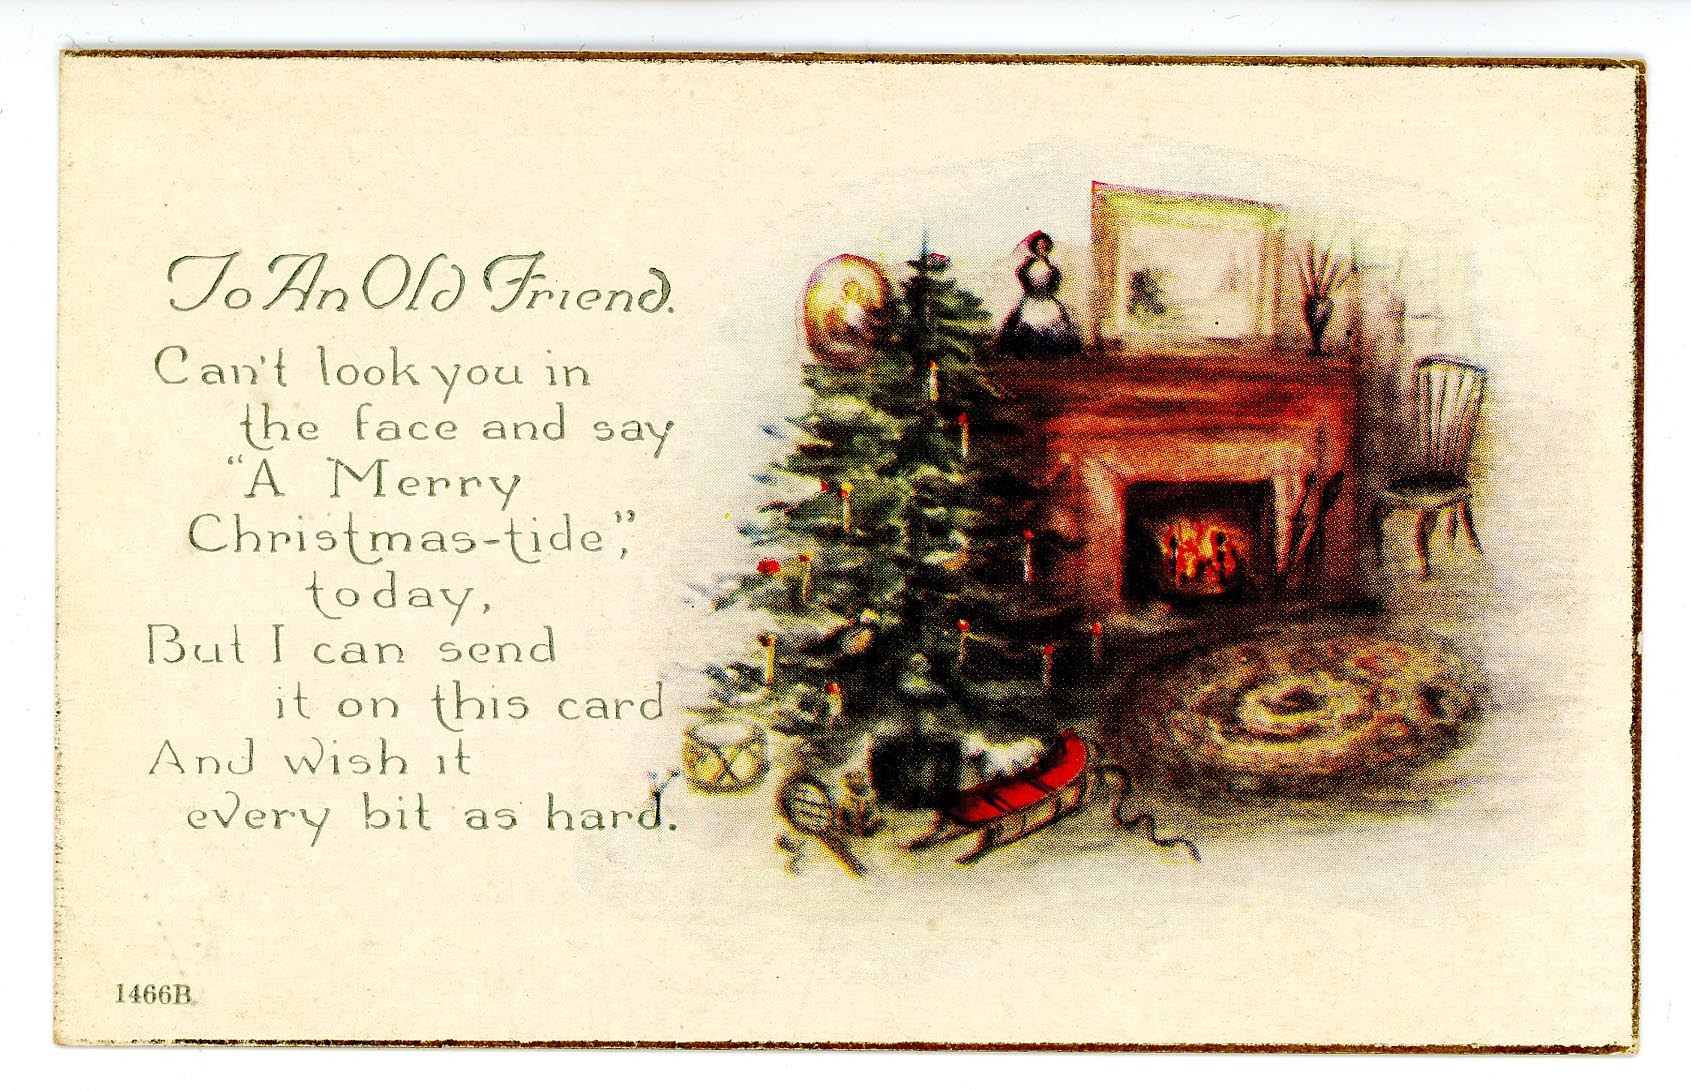 To An Old Friend.
Can't look you in
the face and say
"A Merry
Christmas-tide",
today,
But I can send
it on this card
And wish it
every bit as hard.
1466B